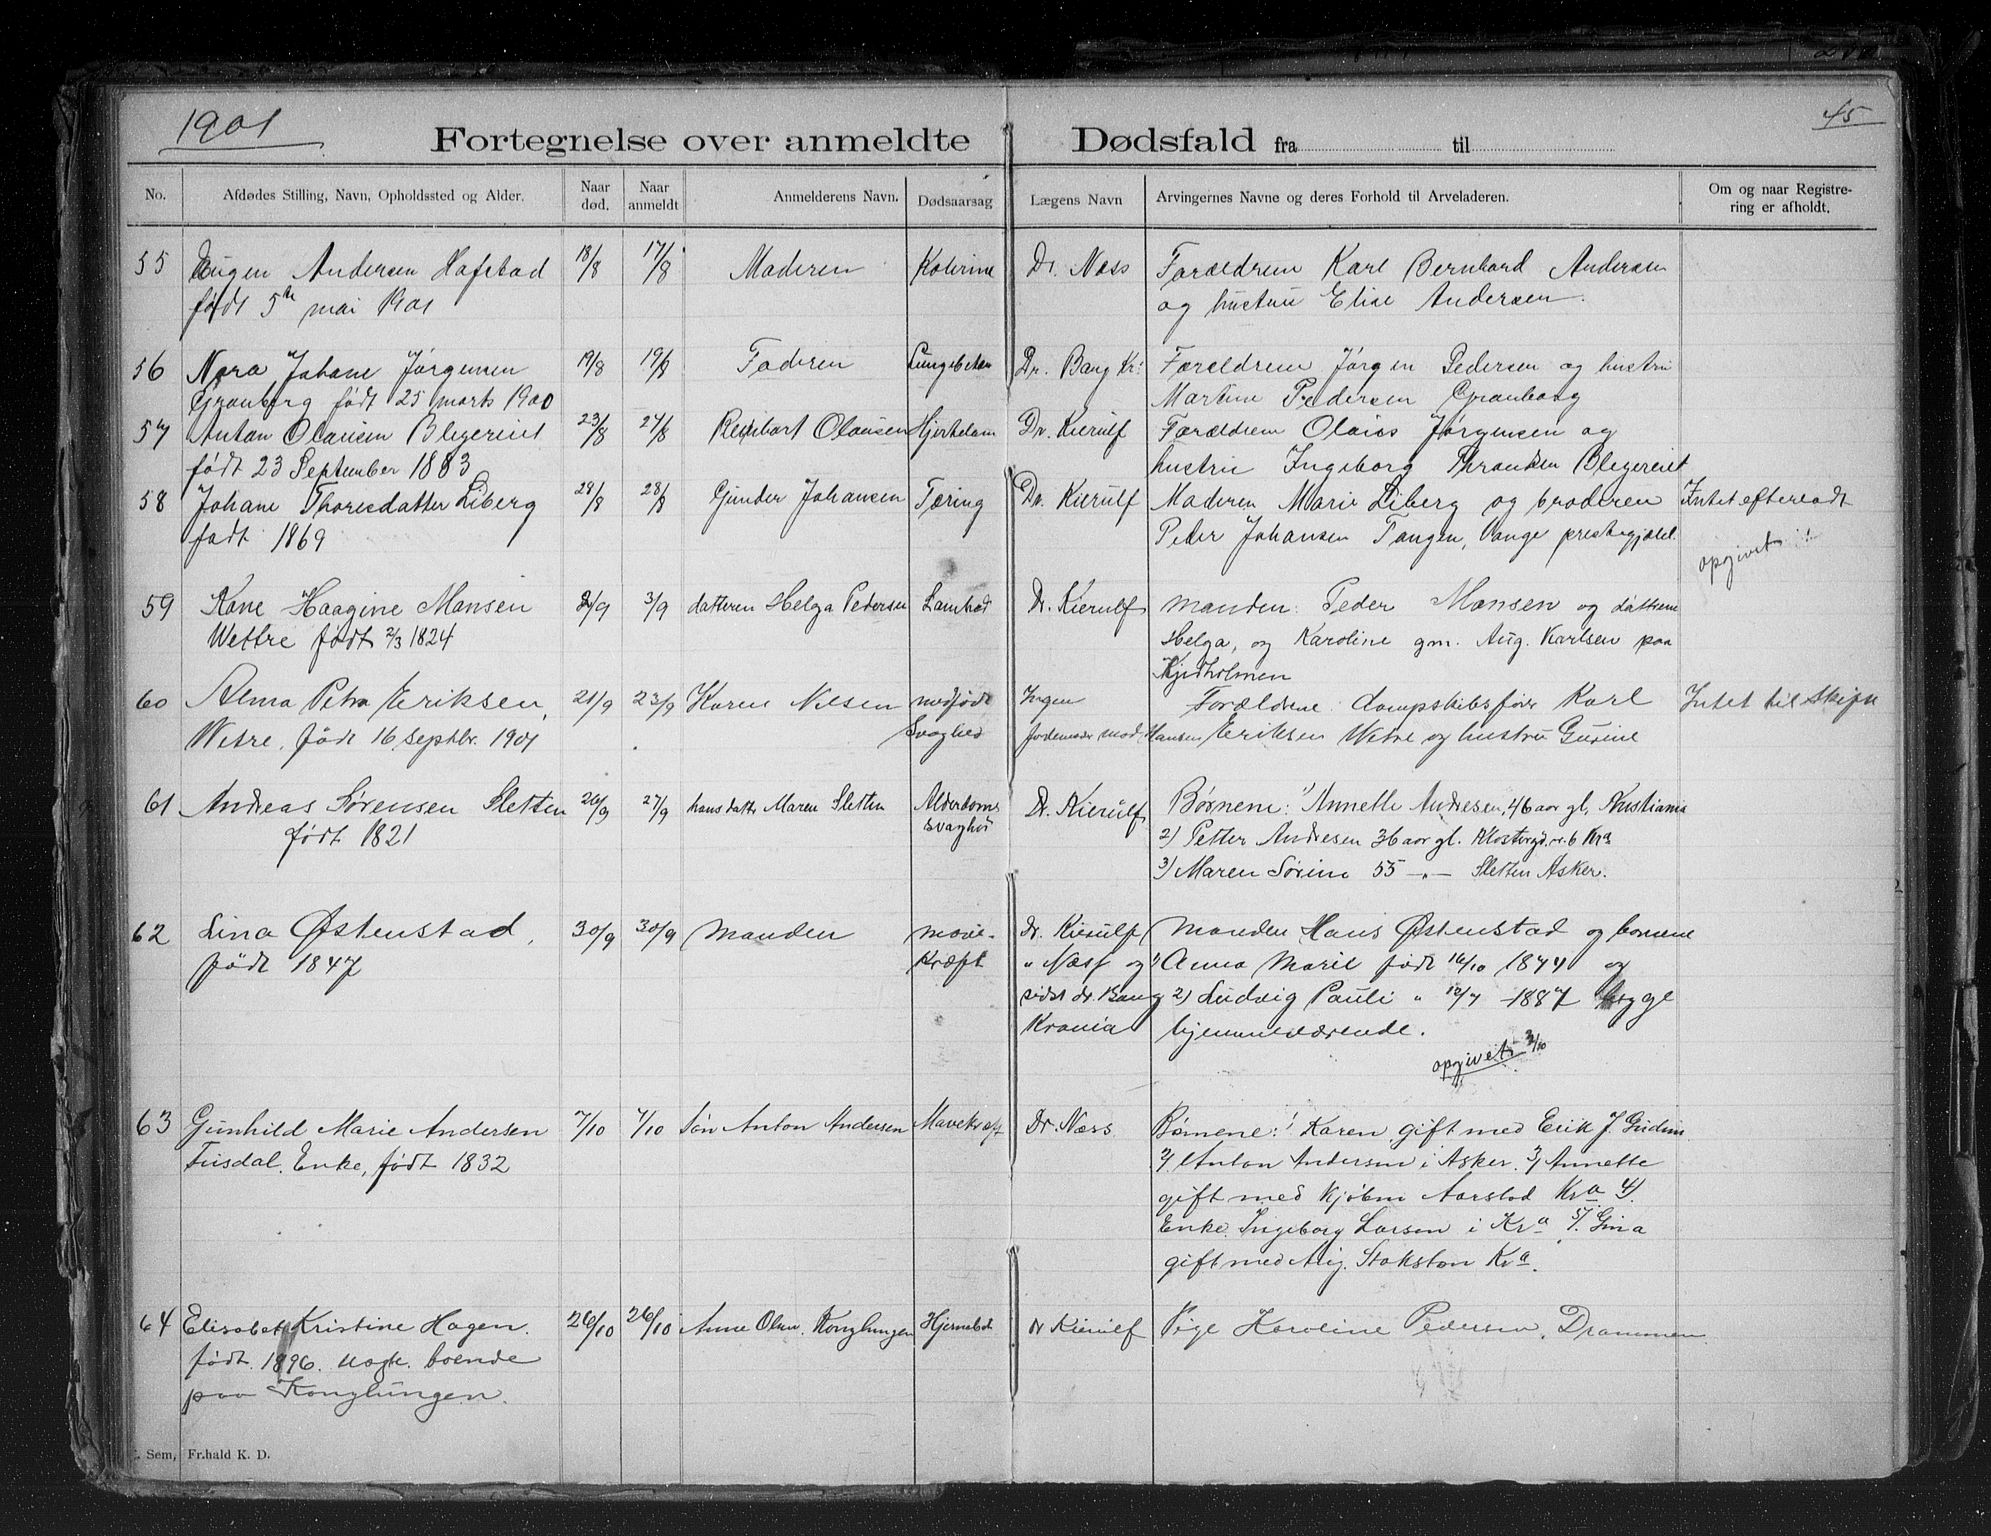 1901
45
Fortegnelse over anmeldte Dødsfald fra til
No. Afdødes Stilling, Navn, Opholdssted og Alder. Naar død. Naar anmeldt Anmelderens Navn. Dødsaarsag Lægens Navn Arvingernes Navne og deres Forhold til Arveladeren. Om og naar Registrering er afholdt.
55 Eugen Andersen Hafstad 13/8 17/8 Moderen Kolerine Dr. Næss Forældrene Karl Bernhard Andersen
født 5te mai 1901 og hustru Elise Andersen.
56 Nora Johane Jørgensen 19/8 19/8 Faderen Lungebetæn Dr. Bang Kr: Forældrene Jørgen Pedersen og hustru
Granberg født 25 marts 1900 Martine Pedersen Granberg
57 Anton Olausen Blegeriet 23/8 24/8 Reinhart Olausen Hjertelam Dr. Kierulf Forældrene Olaus Jørgensen og
født 23 September 1883 hustru Ingeborg Blegeriet
58 Johane Thoresdatter Liberg 28/8 28/8 Gunder Johansen Tæring Dr. Kierulf Moderen Marie Liberg og broderen Intet efterladt
født 1869 Peder Johansen Tangen, Vange prestegjæld. opgivet
59 Kone Haagine Monsen 2/9 3/9 datteren Helga Pedersen Lamhed Dr. Kierulf manden: Peder Monsen og døttrene
Wettre født 2/3 1824 Helga, og Karoline gm. Aug. Karlsen paa
Kjedholmen
60 Alma Petra Eriksen, 21/9 23/9 Karen Nilsen medfødt Ingen Forældrene: dampskibsfører Karl Intet til Skifte
Wetre, født 16 septbr. 1901 Svaghed Jordemoder mad. Hansen Eriksen Wetre og hustru Gurine
61 Andreas Sørensen Sletten 26/9 27/9 hans datter Maren Sletten Alderdoms Dr. Kierulf Børnene: 1) Annette Andresen, 46 aar gl, Kristiania
født 1821 svaghed 2) Petter Andresen 36 aar gl. Klostergd. nr. 6 Kra
3) Maren Sørine 55 -„- Sletten Asker.
62 Lina Østenstad, 30/9 30/9 Manden mave- Dr. Kierulf Manden Hans Østenstad og børnene
født 1847 kræft „ Næss og 1) Anna Marie født 16/10 1874 og
sidst dr. Bang 2) Ludvig Pauli „ 12/7 1887 begge
Krania hjemmeværende.
opgivet 3/10
63 Gunhild Marie Andersen 7/10 7/10 Søn Anton Andersen Mavekræft Dr. Næss Børnene: 1 Karen gift med Erik J.
Tusdal. Enke, født 1832 2) Anton Andersen i Asker. 3) Annette
gift med Kjøbm Aarstad Kra 4)
Enke Ingeborg Larsen i Kra 5). Gina
gift med Aug. Stokston Kra.
64 Elisabet Kristine Hagen. 26/10 26/10 Anne Olsen, Konglungen Hjernebet dr Kierulf Pige Karoline Pedersen, Drammen
født 1896. boende
paa Konglungen.
Sem, Fr.hald K. D.